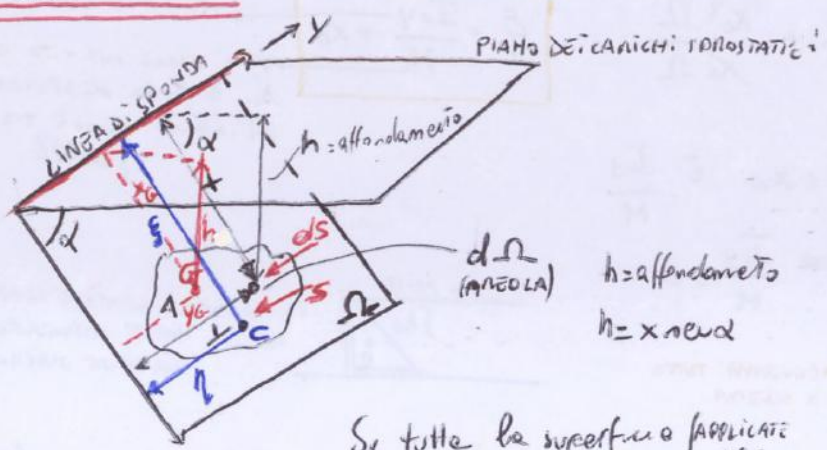 Y
PIANO DEI CARICHI IDROSTATICI
LINEA DI SPONDA
α
h = affondamento
x
xG
ξ
h
α
dS
G
S
dΩ
(AREOLA)
h = affondamento
A
yG
Ω
C
h = x senα
η
Su tutta la superficie
APPLICATE